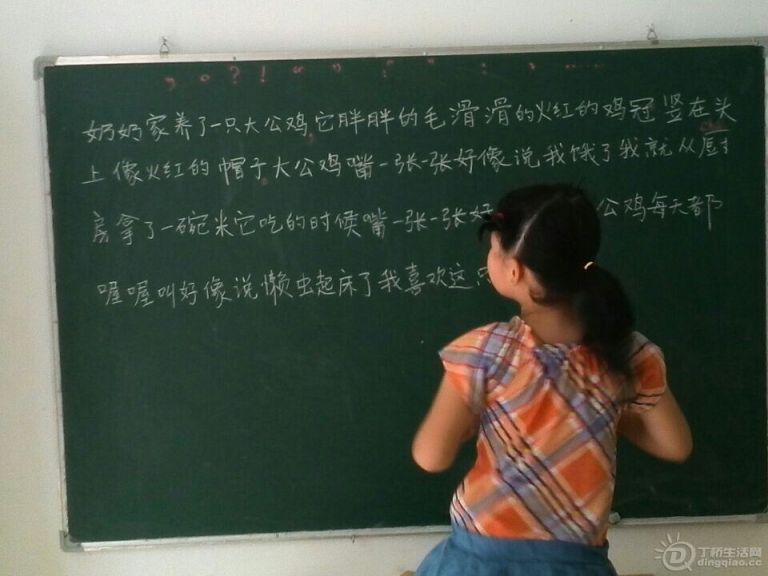 ， 。 ? ! “ ”
奶奶家养了一只大公鸡，它胖胖的毛滑滑的火红的鸡冠竖在头
上像火红的帽子。大公鸡嘴一张一张好像说我饿了我就从厨
房拿了一碗米它吃的时候嘴一张一张好 公鸡每天都
喔喔叫好像说懒虫起床了我喜欢这
丁桥生活网
dingqiao.cc